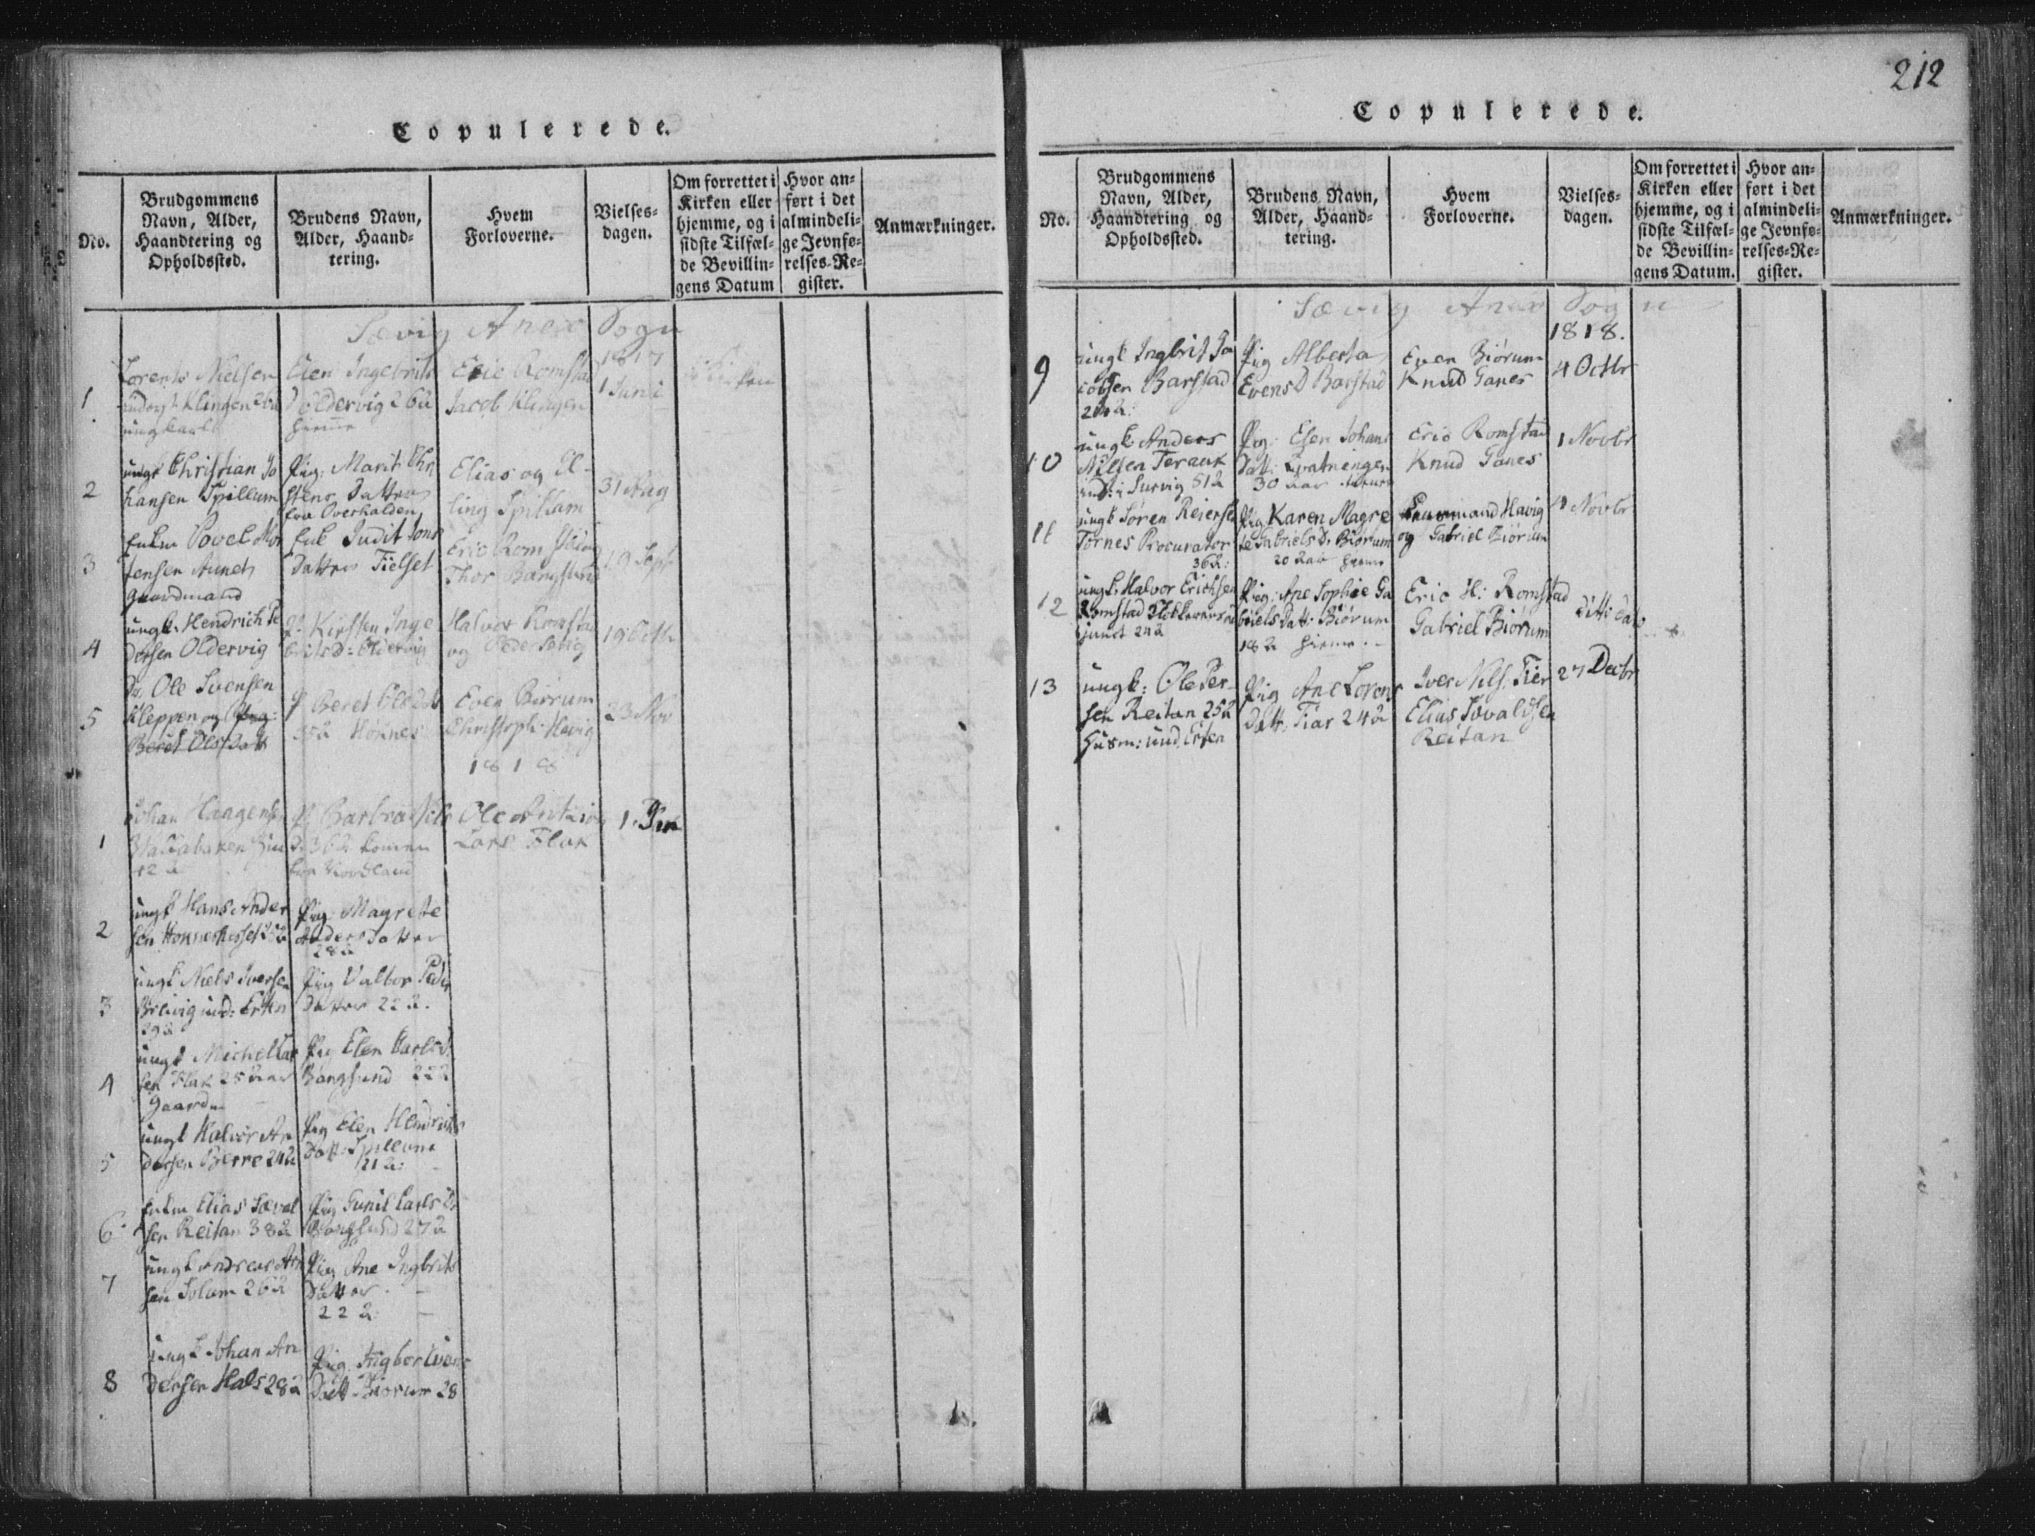 Copulerede.
No.
Brudgommens
Navn, Alder,
Haandtering og
Opholdssted.
Brudens Navn,
Alder, Haand-
tering.
Hvem
Forloverne.
Vielses-
dagen.
Om forrettet i
Kirken eller
hjemme, og i
sidste Tilfæl-
de Bevillin-
gens Datum
Hvor an-
ført i det
almindeli-
ge Jevnfø-
relses-Re-
gister.
Anmærkninger.
Sævig Anex Sogn
1817
1
Lorents Nielsen
Klingen
ungkarl
Elen Ingebrits
D Oldervig 26 a
hjeme
Eric Romstad
Jacob Klingen
1 Juni
i Kirken
2
ungk Christian Jo
hansen Spillum
Pig: Marit Chri
stens Datter
fra Overhalden
Elias og El-
ling Spillum
31 Aug
3
Enkm Povel Mor
tensen Aunet
Gaardmand
Enk Judit Jons
Datter Fielset
Eric Romstad og
Thor Bangsund
19 Sept
4
ungk. Hendrich Pe
dersen Oldervig
P. Kirsten Inge
brits D: Oldervig
Halvor Romstad
og Peder Sævig
19 Octb
5
Ole Svensen
Kleppen og Pig:
Beret Ols Datt
P Beret Ols Dat
35 a Hönnes
Even Biörum
Christoph: Havig
23 Nov
1818
1
Johan Haagens
42 a
P Barbra Nils
D. 36 a kommen
fra Nordland
Ole
Lars Flak
1. Jan
2
ungk Hans Ander
sen
Pig: Magrete
Anders Datter
28 a
3
ungk Niels Iversen
29 a
Pig Valbor Peder
Datter 22 a.
4
ungk Michel Lar
sen Flak 25 aar
Gaardm
Pig Elen Carls D.
Bangsund 22 a
5
ungk Halvor An
dersen Berre 24 a
Pig Elen Hendrichs
Datt: Spillum
21 a:
6
Enkm Elias Sæval
sen Reitan 38 a
Pig Gunil Carls D.
Bangsund 27 a
7
ungk Andreas
sen Solem 26 a
Pig Ane Ingbrits
Datter
22 a
8
ungk Johan An
dersen Hals 28 a
Pig. Ingbor Evens
Datt Biörum 28
212
Copulerede.
No.
Brudgommens
Navn, Alder,
Haandtering og
Opholdssted.
Brudens Navn,
Alder, Haand-
tering.
Hvem
Forloverne.
Vielses-
dagen.
Om forrettet i
Kirken eller
hjemme, og i
sidste Tilfæl-
de Bevillin-
gens Datum.
Hvor an-
ført i det
almindeli-
ge Jevnfø-
relses-Re-
gister.
Anmærkninger.
Sævig Anex Sogn
1818.
9
ungk Ingbrit Ja
cobsen Barstad
Pig Alberta
Evens D Barstad
Even Biörum
Knud Ganes
4 Octbr
10
ungk Anders
Nilsen
51 a
Pig: Elen Johans
Datt:
30 aar
Eric Romstad
Knud Ganes
1 Novbr
11
ungk Sören Reiersen
Tornes Procurator
36 a:
Pig Karen Magre
te Gabriels D. Biörum
20 aar hjeme
Havig
og Gabriel Biörum
4 Novbr
12
ungk. Halvor Erichsen
Romstad
24 a
Pig: Ane Sophie Ga
briels Datt: Biörum
18 a hjeme
Eric H: Romstad
Gabriel Biörum
ditto dato
13
ungk: Ole Per-
sen Reitan 25 a
Husm:
Pig Ane Lorens
Datt. Fiar 24 a
Iver Nils. Fier
Elias Sævaldsen
Reitan
27 Decbr